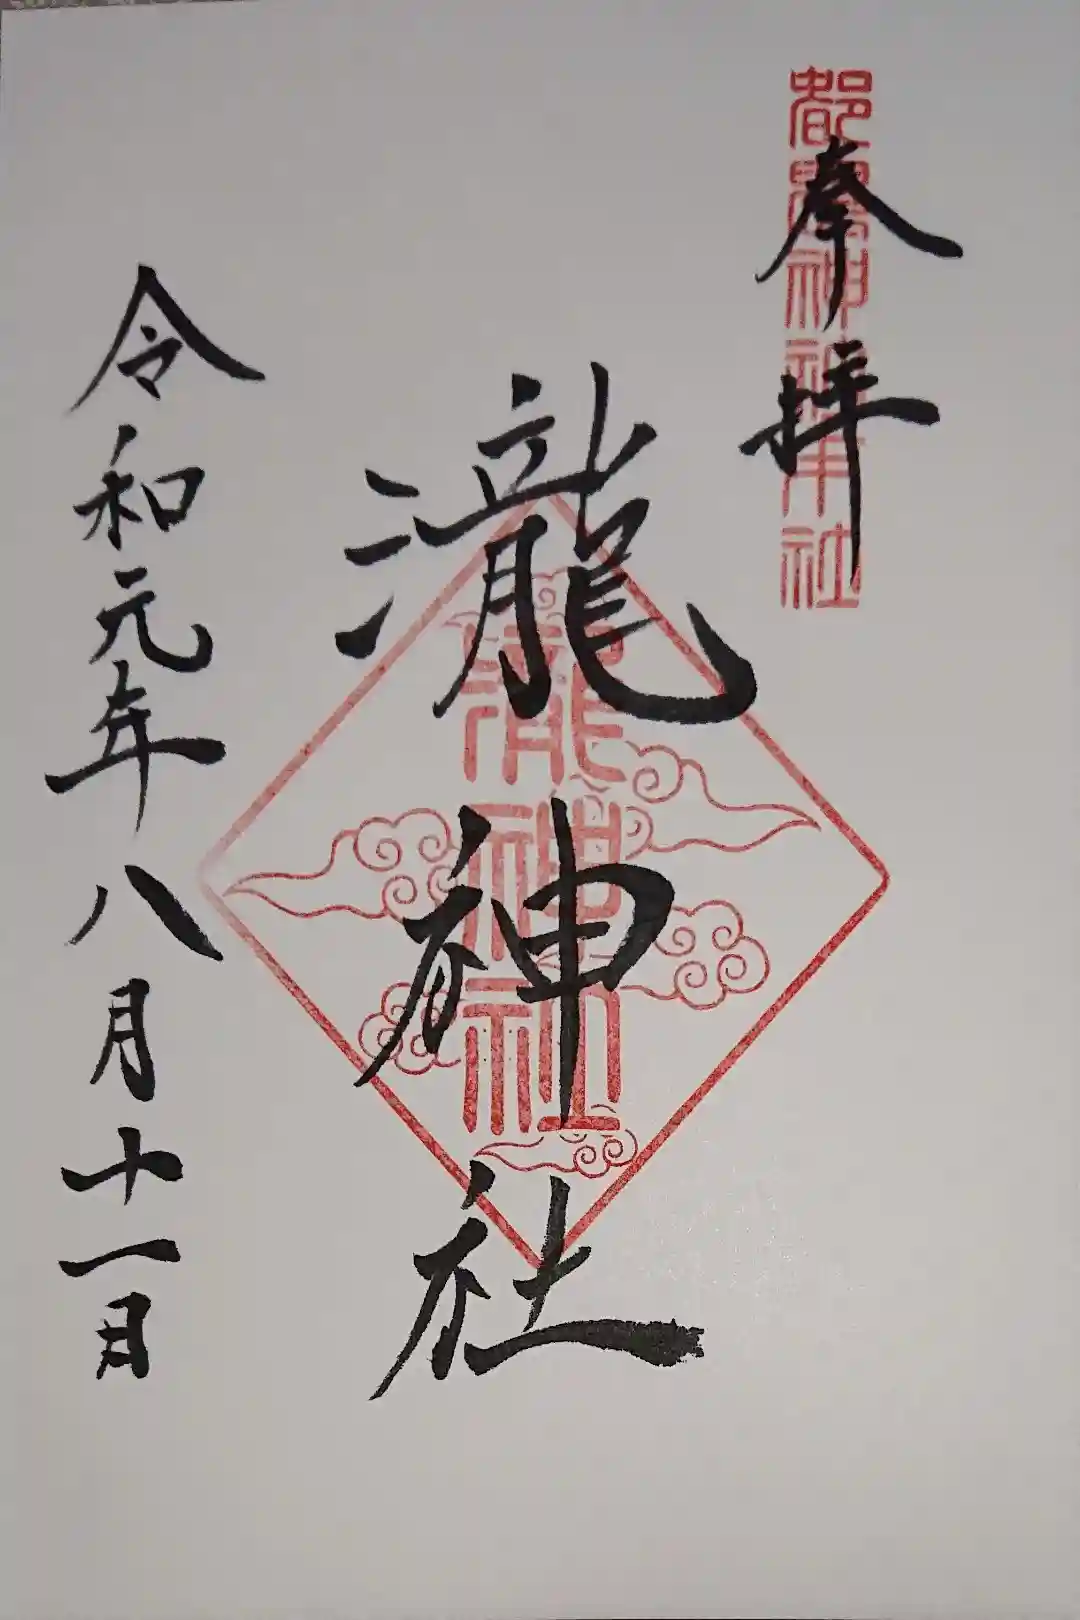 奉拝
都農神社末社
瀧神社
瀧神社
令和元年八月十一日